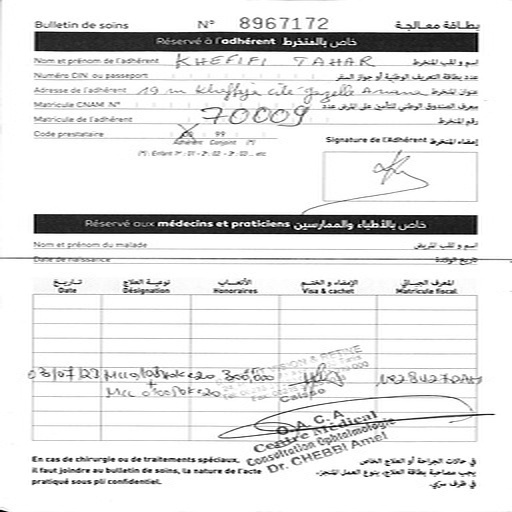 Bulletin de soins N° 8967172 بطـاقة معـالجـة
Réservé à l'adhérent خاص بالمنخرط
Nom et prénom de l'adhérent KHEFIFI TAHAR اسم و لقب المنخرط
Numéro CIN ou passeport عدد بطاقة التعريف الوطنية أو جواز السفر
Adresse de l'adhérent 19 cité عنوان المنخرط
Matricule CNAM N° معرف الصندوق الوطني للتأمين على المرض عدد
Matricule de l'adhérent 70009 رقم المنخرط
Code prestataire 00 99
Adhérent Conjoint (*)
(*) : Enfant 1er : 01 - 2e : 02 - 3e : 03 ... etc
Signature de l'Adhérent إمضاء المنخرط
Réservé aux médecins et praticiens خاص بالأطباء والممارسين
Nom et prénom du malade اسم و لقب المريض
Date de naissance تاريخ الولادة
تـاريـخ نوعيـة العلاج الأتعــاب الإمضاء و الختـم المعرف الجبـائي
Date Désignation Honoraires Visa & cachet Matricule fiscal
03/07/23 300,000
O.A.C.A
Centre Médical
Consultation Ophtalmologie
Dr. CHEBBI Amel
En cas de chirurgie ou de traitements spéciaux,
il faut joindre au bulletin de soins, la nature de l'acte
pratiqué sous pli confidentiel.
في حالات الجراحة أو العلاج الخاص
يجب مصاحبة بطاقة العلاج، بنوع العمل المنجز،
في ظرف سرّي.